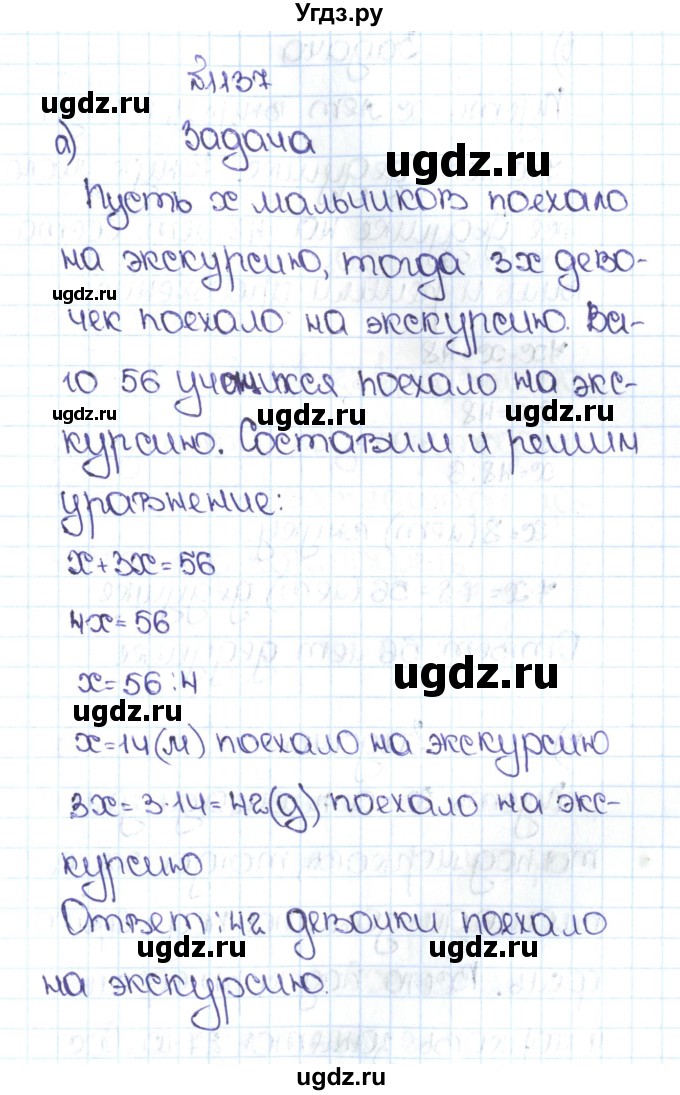 Угдз.ру
№1137
ugdz.ru
а) Задача
ugdz.ru
Пусть x мальчиков поехало
на экскурсию, тогда 3x дево-
ugdz.ru
чек поехало на экскурсию. Вс-
го 56 учащихся поехало на экс-
ugdz.ru ugdz.ru ugdz.ru
курсию. Составим и решим
уравнение:
x+3x=56
4x=56
ugdz.ru
x=56:4
ugdz.ru
x=14(м) поехало на экскурсию
3x=3·14=42(д) поехало на экс-
курсию
Ответ: 42 девочки поехало
ugdz.ru ugdz.ru
на экскурсию.
ugdz.ru